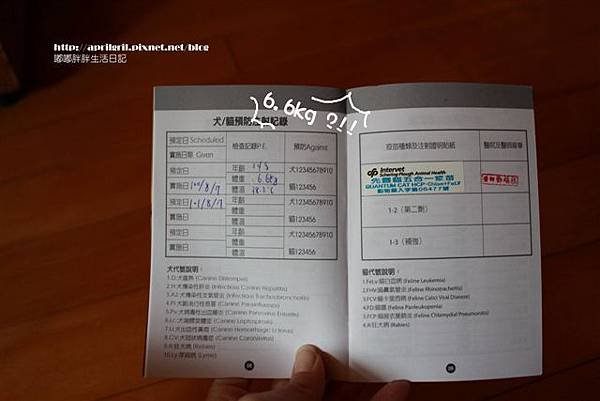 http://aprilgril.pixnet.net/blog
嘟嘟胖胖生活日記
6.6kg ?!!
犬/貓預防注射記錄
預定日 Scheduled
實施日期 Given
檢查記錄P.E.
預防Agains
預定日
實施日
年齡
體重 6.6kg
體溫
犬12345678910
貓123456
預定日
實施日
年齡
體重
體溫
犬12345678910
貓123456
預定日
實施日
年齡
體重
體溫
犬12345678910
貓123456
犬代號說明：
1.D:犬瘟熱 (Canine Distemper)
2.H:犬傳染性肝炎 (Infectious Canine Hepatitis)
(Infectious Tracheobronchitis)
(Canine Parainfluenza)
(Canine Parvovirus Enteritis)
(Canine Leptospirosis)
8.CV:犬冠狀病毒症 (Canine Coronavirus)
9.R:狂犬病 (Rabies)
10.Ly:萊姆病 (Lyme)
08
疫苗種類及注射證明貼紙
醫院及醫師簽章
Intervet
Schering-Plough Animal Health
先靈貓五合一疫苗
QUANTUM CAT HCP-Chlam+FeLV
動物藥入字第05477號
1-2（第二劑）
1-3（補強）
貓代號說明：
1.FeLv:貓白血病 (Feline Leukemia)
2.FHV:貓鼻氣管炎 (Feline Rhinotracheitis)
3.FCV:貓卡里西病 (Feline Calici Viral Disease)
4.FD:貓瘟 (Feline Panleukopenia)
5.FCP:貓披衣菌肺炎 (Feline Chlamydial Pneumonitis)
6.R:狂犬病 (Rabies)
09